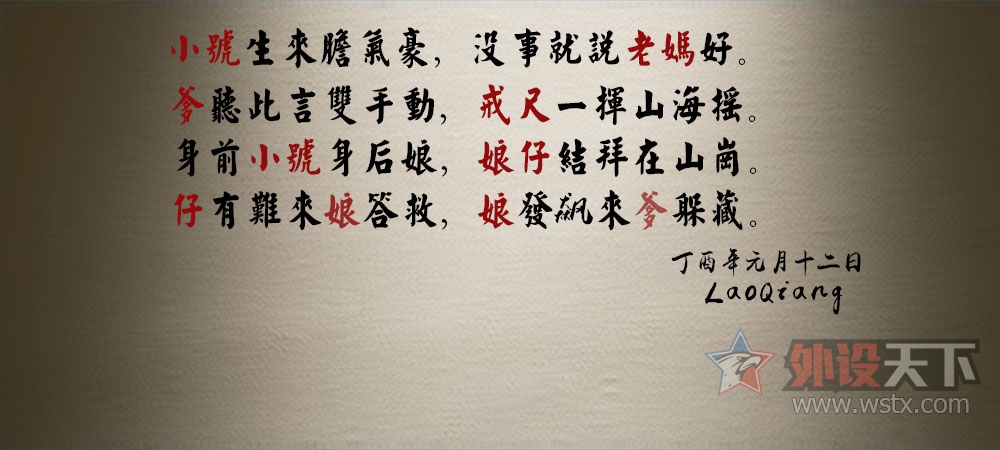 小號生來膽氣豪，没事就説老媽好。
爹聽此言雙手動，戒尺一揮山海摇。
身前小號身后娘，娘仔結拜在山崗。
仔有難來娘答救，娘發飆來爹躲藏。
丁酉年元月十二日
LaoQiang
外设天下
www.wstx.com